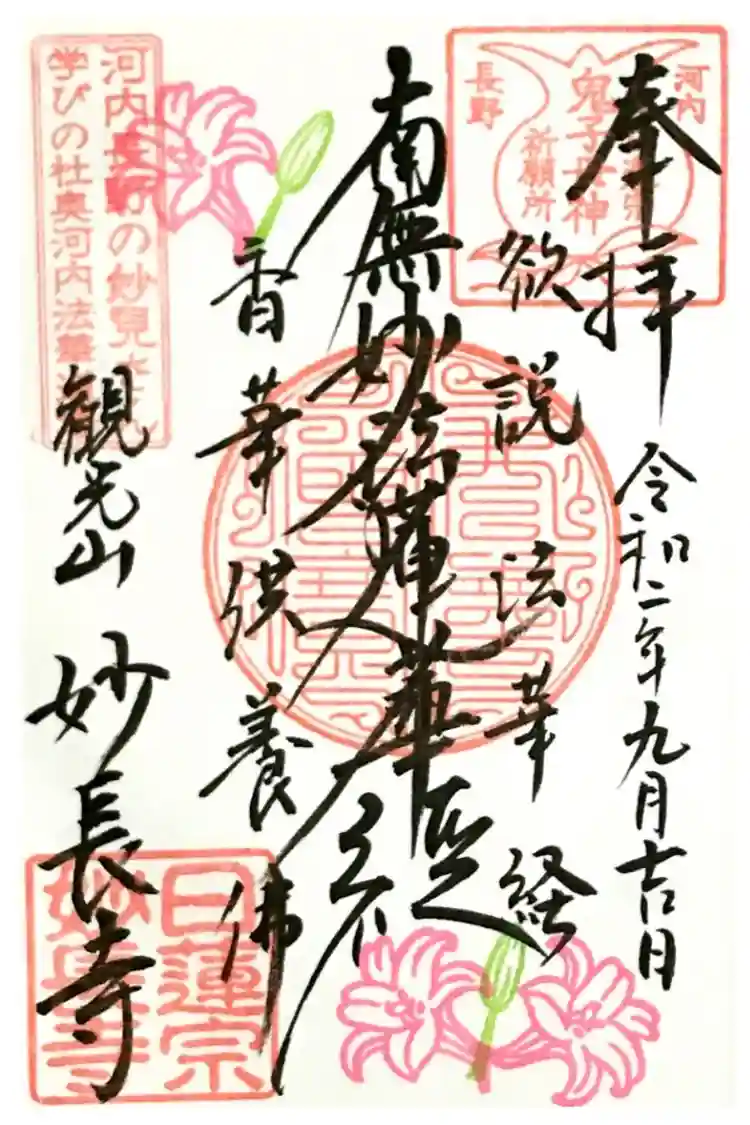 奉拝
令和二年九月吉日
欲説法華経
南無妙法蓮華経
香華供養佛
観光山 妙長寺
河内
長野
鬼子母神
祈願所
河内長野の妙見
学びの杜奥河内法華
日蓮宗
妙長寺